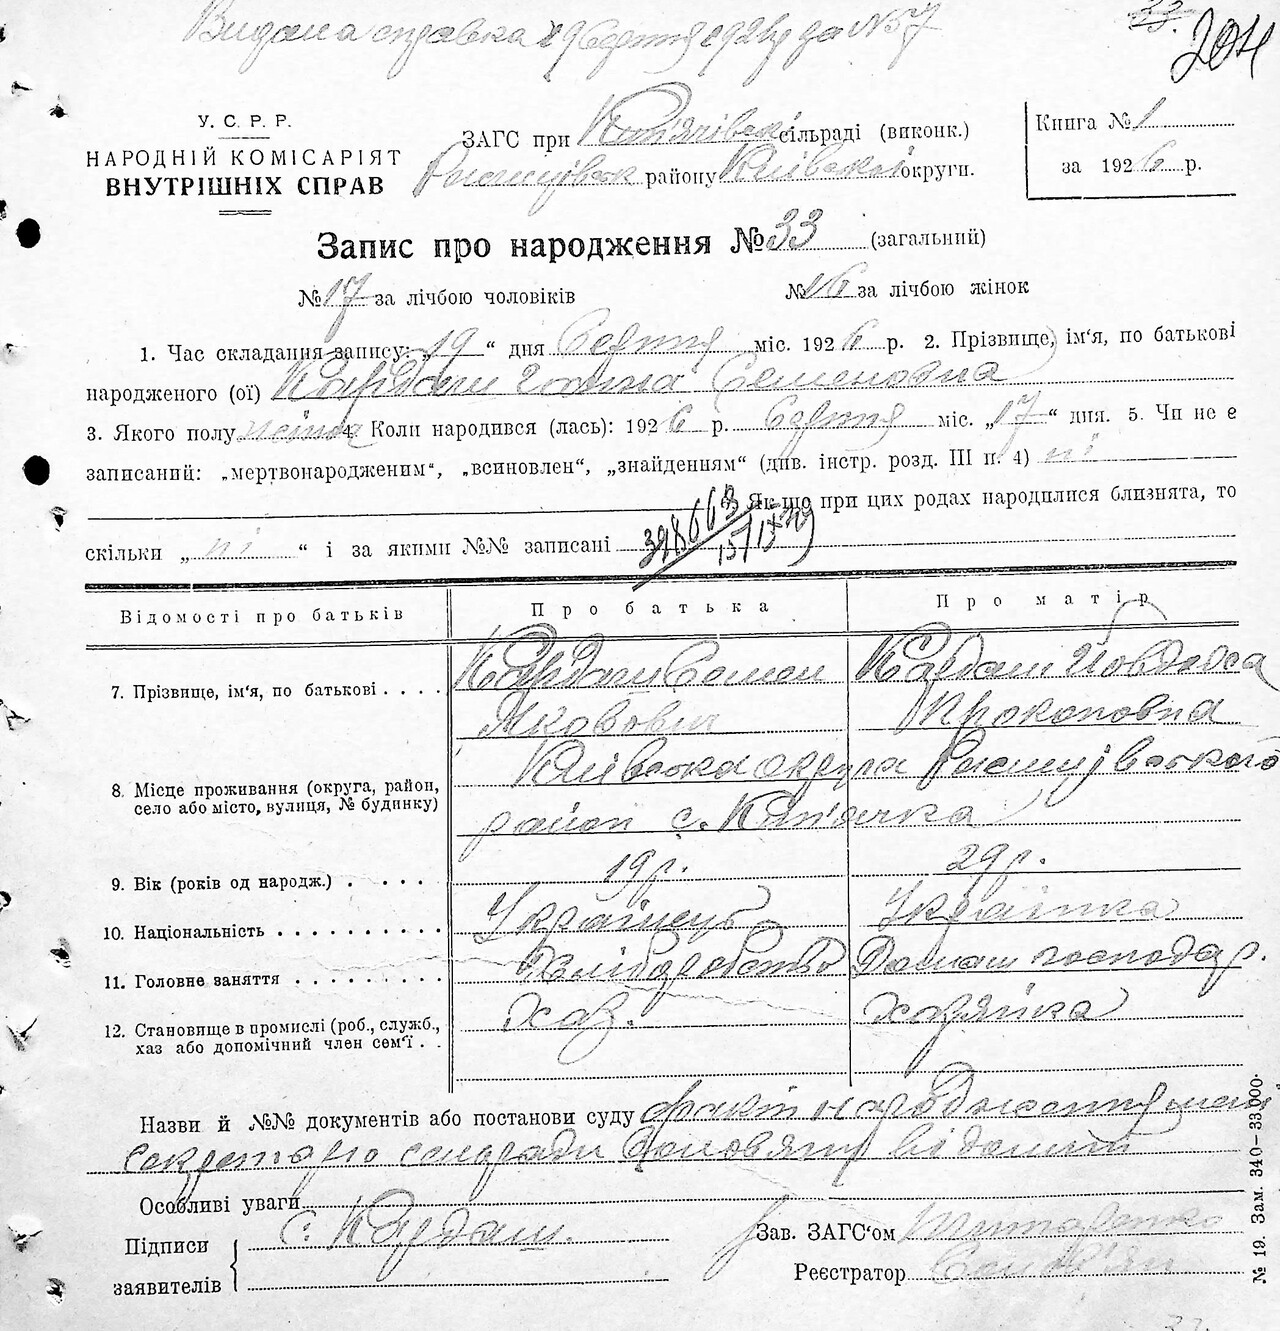 Видана справка 19 серпня 1924р за №57
33.
204
У. С. Р. Р.
НАРОДНІЙ КОМІСАРІЯТ
ВНУТРІШНІХ СПРАВ
ЗАГС при сільраді (виконк.)
району Київської округи.
Книга № 1
за 1926 р.
Запис про народження № 33 (загальний)
№ 17 за лічбою чоловіків
№ 16 за лічбою жінок
1. Час складання запису: „19“ дня Серпня міс. 1926 р. 2. Прізвище, ім'я, по батькові
народженого (ої) Кардаш Ганна Семеновна
3. Якого полу жіноч. 4. Коли народився (лась): 1926 р. Серпня міс. „17“ дня. 5. Чи не е
записаний: „мертвонародженим“, „всиновлен“, „знайденням“ (див. інстр. розд. III п. 4) ні
6. Якщо при цих родах народилися близнята, то
скільки „ні“ і за якими №№ записані
Відомості про батьків Про батька Про матір
7. Прізвище, ім'я, по батькові . . . . Кардаш Семен Кардаш Йовдоха
Якович Прокоповна
8. Місце проживання (округа, район, село або місто, вулиця, № будинку) Київська округа
район с.
9. Вік (років од народж.) . . . . . 19 р. 29 р.
10. Національність . . . . . . . . . . Українець Українка
11. Головне заняття . . . . . . . . . Хліборобство Домаш господар.
12. Становище в промислі (роб., служб., хаз. Хазяйка
хаз або допомічний член сем'ї . .
Назви й №№ документів або постанови суду факт народження
секретарю сільради відомий
Особливі уваги
Підписи С. Кардаш.
заявителів
Зав. ЗАГС'ом Титаренко
Реєстратор
№ 19. Зам. 340–33.000.